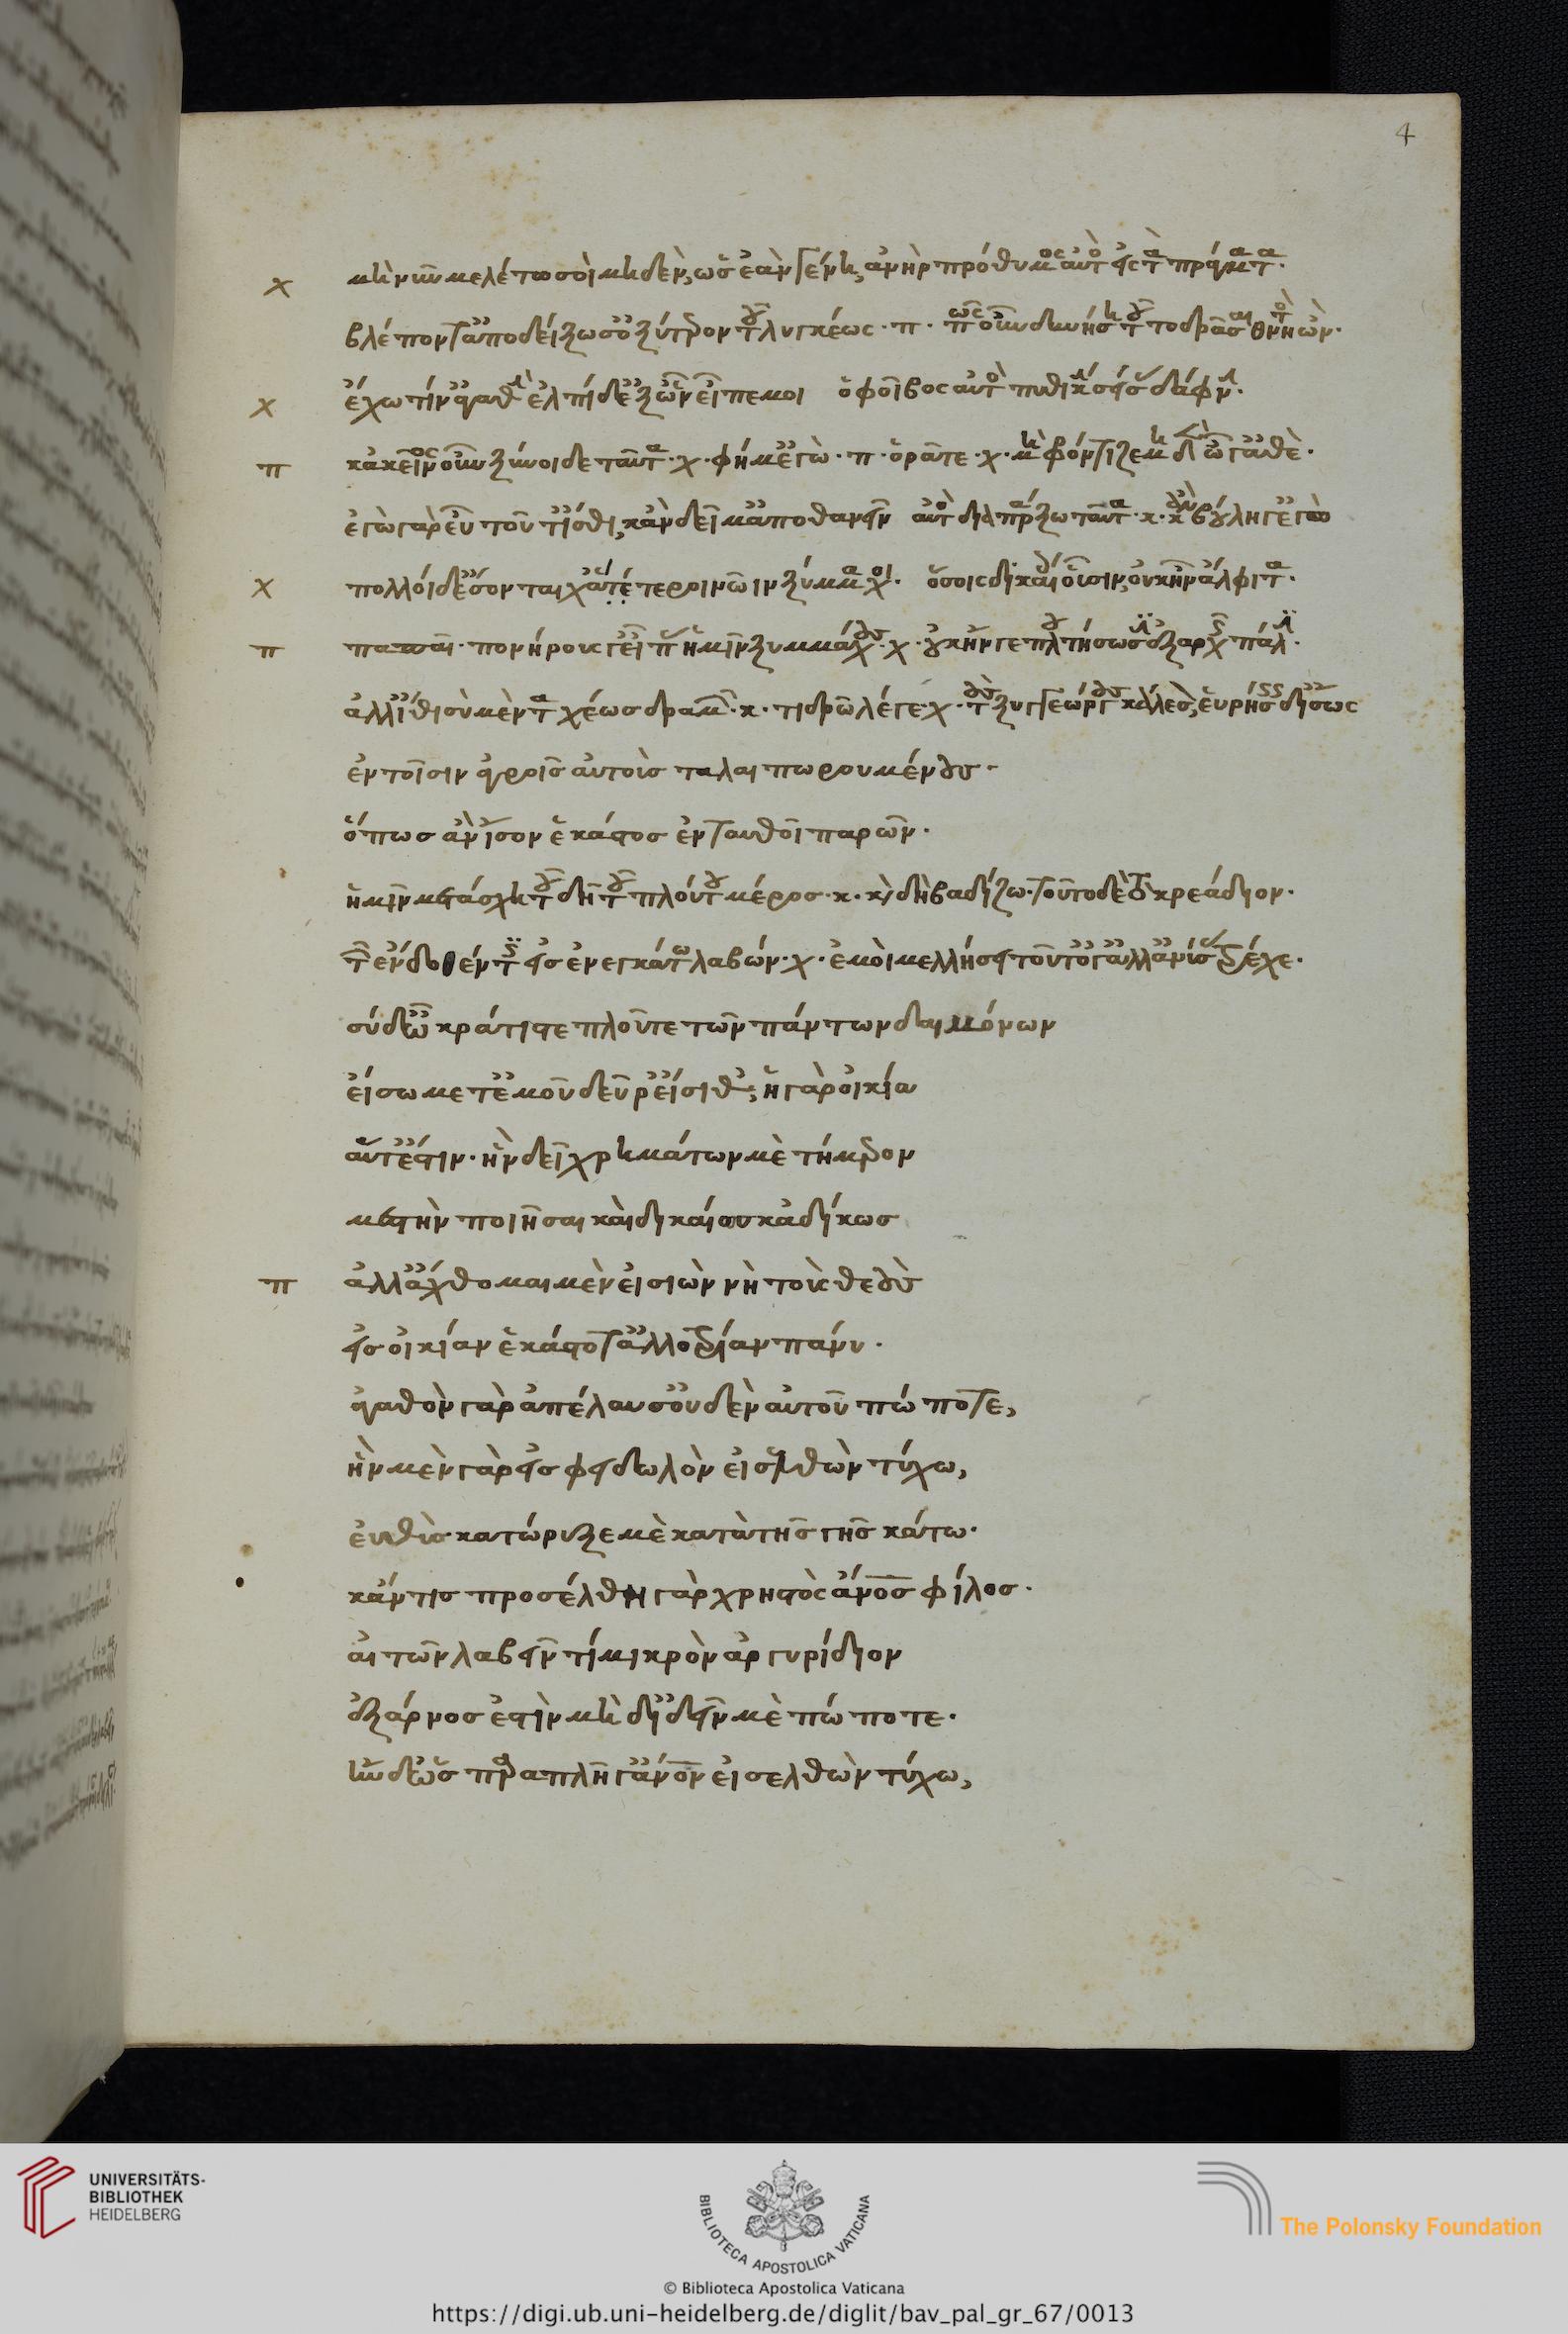 4
χ μὴ νῦν μελέτω σοὶ μηδὲν, ὡς ἐὰν γένη, ἀνὴρ πρόθυμος αὐτὸ εἰς τὰ πράγματα.
βλέποντ' ἀποδείξω σ' ὀξύτερον τοῦ λυγκέως · π · πῶς οὖν δυνήση τοῦτο δρᾶσαι θνητὸς ὤν ·
χ ἔχω τίν' ἀγαθὴν ἐλπίδ' ἐξ ὧν εἶπε μοι ὁ φοῖβος αὐτὸς πυθικὴν σείσας δάφνην.
π κἀκεῖνος οὖν ξύνοιδε ταῦτα · χ · φήμ' ἐγὼ · π · ὁρᾶτε · χ · μὴ φρόντιζε μηδὲν ὦγαθέ.
ἐγὼ γὰρ εὖ τοῦτ' ἴσθι, κἂν δεῖ μ' ἀποθανεῖν αὐτὸς διαπράξω ταῦτα · κ · κἂν βούλη γ' ἐγὼ
χ πολλοί δ' ἔσονται χἄτέτεροι νῶιν ξύμμαχοι. ὅσοις δικαίοις οὖσιν, οὐκ ἦν ἄλφιτα.
π παπαῖ · πονήρους γ' εἶπας ἡμῖν ξυμμάχους · χ · οὐκ ἤν γε πλουτήσωσιν ἐξ ἀρχῆς πάλιν.
ἀλλ' ἴθι σὺ μὲν ταχέως δραμῶν · κ · τι δρῶ λέγε · χ · τοὺς ξυγγεώργους κάλεσον, εὑρήσεις δ' ἴσως
ἐν τοῖσιν ἀγροῖς αὐτοὺς ταλαιπωρουμένους ·
ὅπως ἂν ἴσον ἕκαστος ἐνταυθοῖ παρῶν ·
ἡμῖν μετάσχη τοῦδε τοῦ πλούτου μέρος · κ · καὶ δὴ βαδίζω · τοῦτο δὲ τὸ κρεάδιον ·
τῶν ἔνδοθέν τις εἰσενεγκάτω λαβών · χ · ἐμοὶ μελλήσει τοῦτό γ' ἀλλ' ἀνύσας τρέχε ·
σύ δ' ὦ κράτιστε πλοῦτε τῶν πάντων δαιμόνων
εἴσω μετ' ἐμοῦ δεῦρ' εἴσιθ'; ἡ γὰρ οἰκία
αὕτ' ἐστιν · ἣν δεῖ χρημάτων μὲ τήμερον
μεστὴν ποιῆσαι καὶ δικαίως κἀδίκως
π ἀλλ' ἄχθομαι μὲν εἰσιὼν νὴ τοὺς θεοὺς
εἰς οἰκίαν ἑκάστοτ' ἀλλοτρίαν πάνυ ·
ἀγαθὸν γὰρ ἀπέλαυσ' οὐδὲν αὐτοῦ πώποτε,
ἢν μὲν γὰρ εἰς φειδωλὸν εἰσελθὼν τύχω,
εὐθὺς κατώρυξε μὲ κατὰ τῆς γῆς κάτω ·
κἄν τις προσέλθη γὰρ χρηστὸς ἄνος φίλος ·
αἰτῶν λαβεῖν τί μικρὸν ἀργυρίδιον
ἔξαρνος ἐστὶν μὴ δ' ἰδεῖν μὲ πώποτε ·
ἢν δ' ὡς παραπλῆγ' ἄνον εἰσελθὼν τύχω,
UNIVERSITÄTS-
BIBLIOTHEK
HEIDELBERG
BIBLIOTECA APOSTOLICA VATICANA
The Polonsky Foundation
© Biblioteca Apostolica Vaticana
https://digi.ub.uni-heidelberg.de/diglit/bav_pal_gr_67/0013